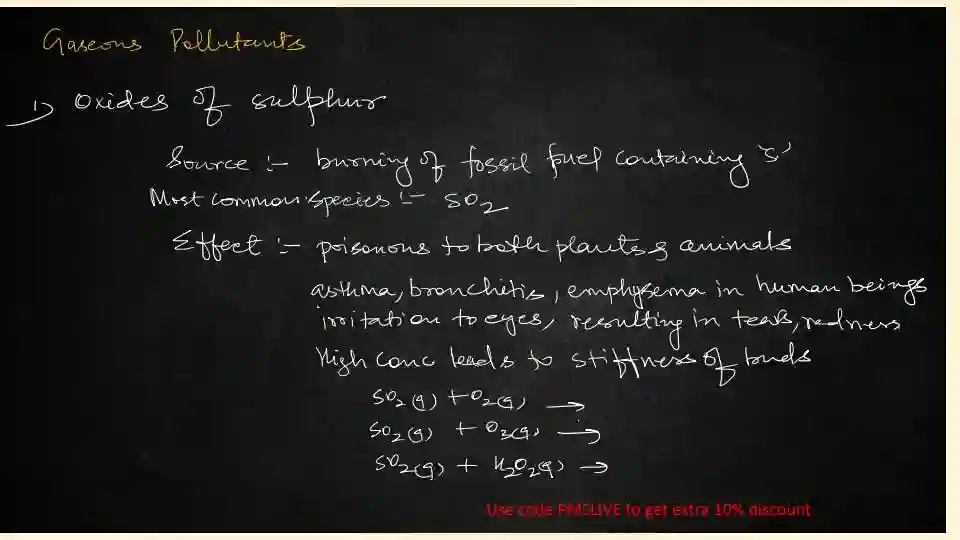 Gaseous Pollutants
1) Oxides of sulphur
Source :- burning of fossil fuel containing 'S'
Most common species :- SO2
Effect :- poisonous to both plants & animals
asthma, bronchitis, emphysema in human beings
irritation to eyes, resulting in tears, redness
High conc leads to stiffness of buds
SO2(g) + O2(g) →
SO2(g) + O3(g) →
SO2(g) + H2O2(g) →
Use code PMSLIVE to get extra 10% discount